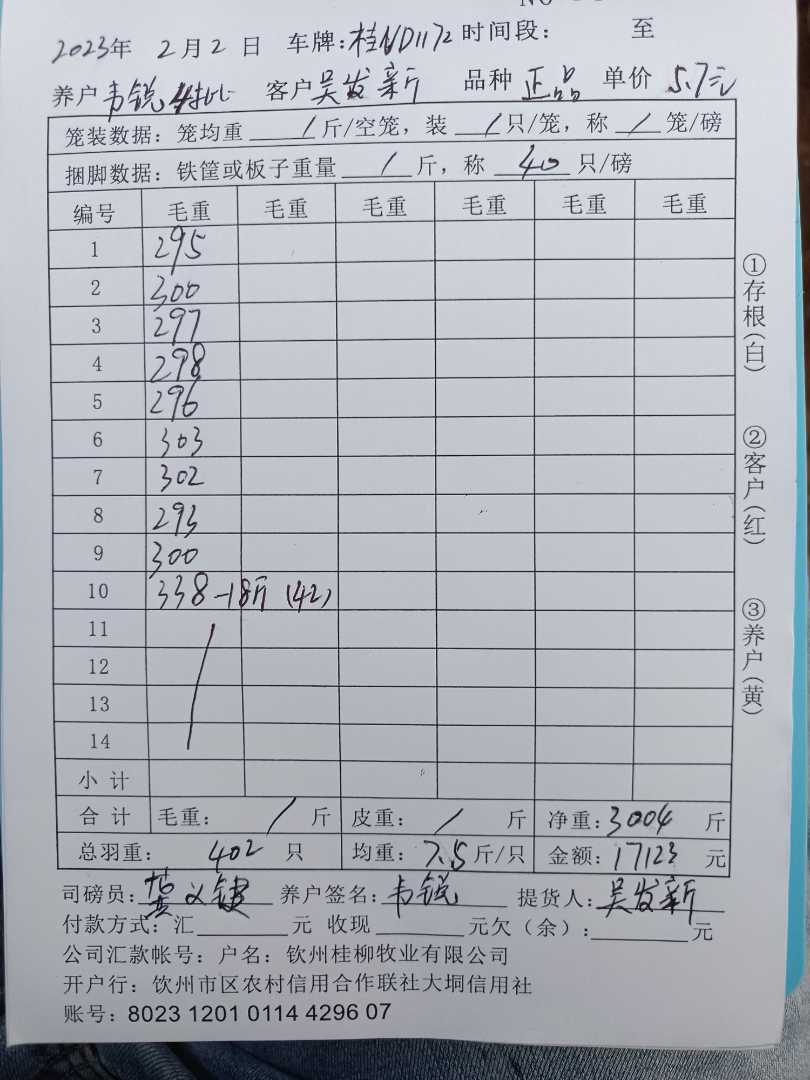 2023年 2月2日 车牌:桂ND1172 时间段: 至
养户 韦锐 客户吴发新 品种 正品 单价 5.7元
笼装数据: 笼均重 / 斤/空笼, 装 / 只/笼, 称 / 笼/磅
捆脚数据: 铁筐或板子重量 / 斤, 称 40 只/磅
编号 毛重 毛重 毛重 毛重 毛重 毛重
1 295
2 300
3 297
4 298
5 296
6 303
7 302
8 293
9 300
10 338-18斤 (42)
11
12
13
14
小计
合计 毛重: / 斤 皮重: / 斤 净重:3004 斤
总羽重: 402 只 均重: 7.5 斤/只 金额: 17123 元
司磅员: 黄义健 养户签名: 韦锐 提货人: 吴发新
付款方式: 汇 元 收现 元欠(余): 元
公司汇款帐号: 户名: 钦州桂柳牧业有限公司
开户行: 钦州市区农村信用合作联社大垌信用社
账号: 8023 1201 0114 4296 07
①存根(白)
②客户(红)
③养户(黄)